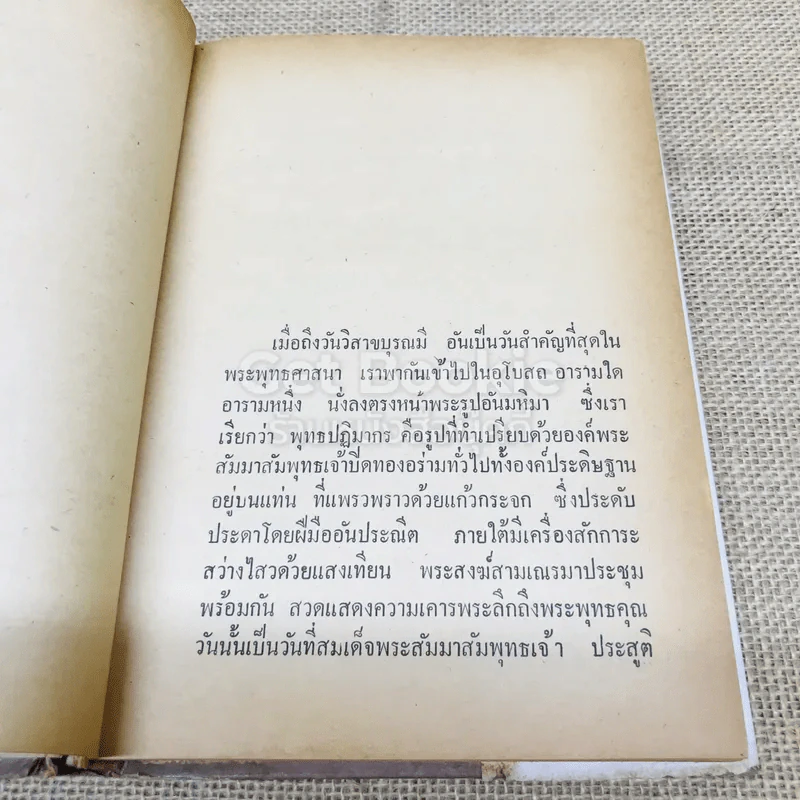 เมื่อถึงวันวิสาขบุรณมี อันเป็นวันสำคัญที่สุดใน
พระพุทธศาสนา เราพากันเข้าไปในอุโบสถ อารามใด
อารามหนึ่ง นั่งลงตรงหน้าพระรูปอันมหิมา ซึ่งเรา
เรียกว่า พุทธปฏิมากร คือรูปที่ทำเปรียบด้วยองค์พระ
สัมมาสัมพุทธเจ้าปิดทองอร่ามทั่วไปทั้งองค์ประดิษฐาน
อยู่บนแท่น ที่แพรวพราวด้วยแก้วกระจก ซึ่งประดับ
ประดาโดยฝีมืออันประณีต ภายใต้มีเครื่องสักการะ
สว่างไสวด้วยแสงเทียน พระสงฆ์สามเณรมาประชุม
พร้อมกัน สวดแสดงความเคารพระลึกถึงพระพุทธคุณ
วันนั้นเป็นวันที่สมเด็จพระสัมมาสัมพุทธเจ้า ประสูติ
Get Bookie